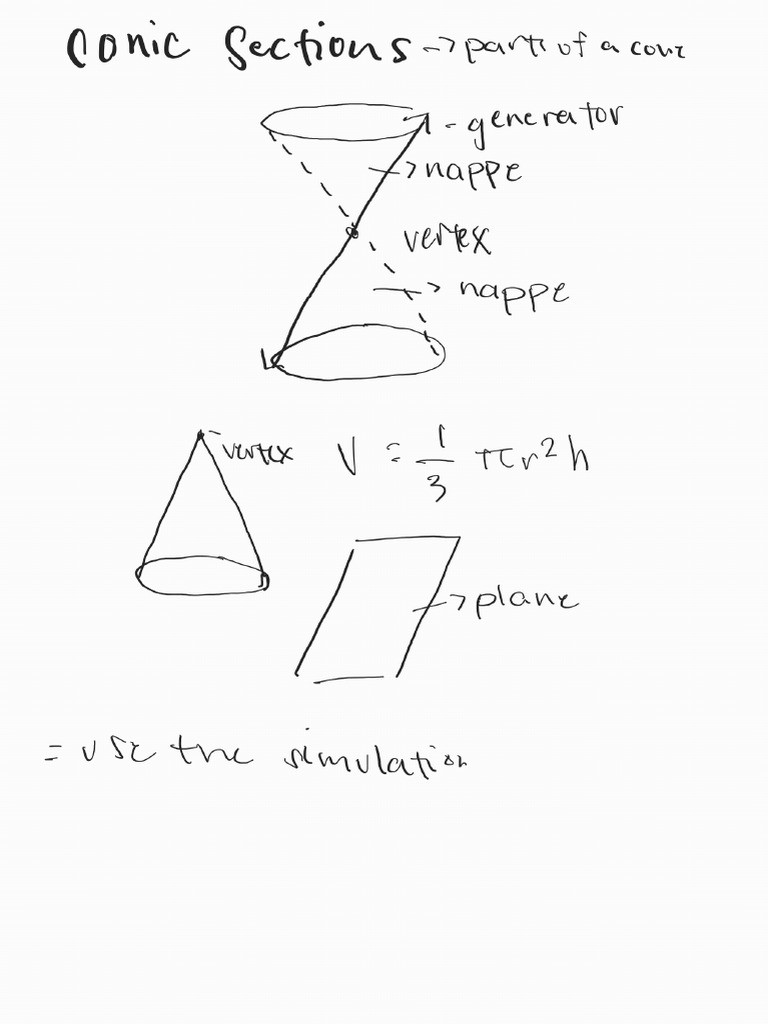 Conic Sections → parts of a cone
- generator
→ nappe
vertex
→ nappe
- vertex
V = 1/3 πr²h
→ plane
= use the simulation